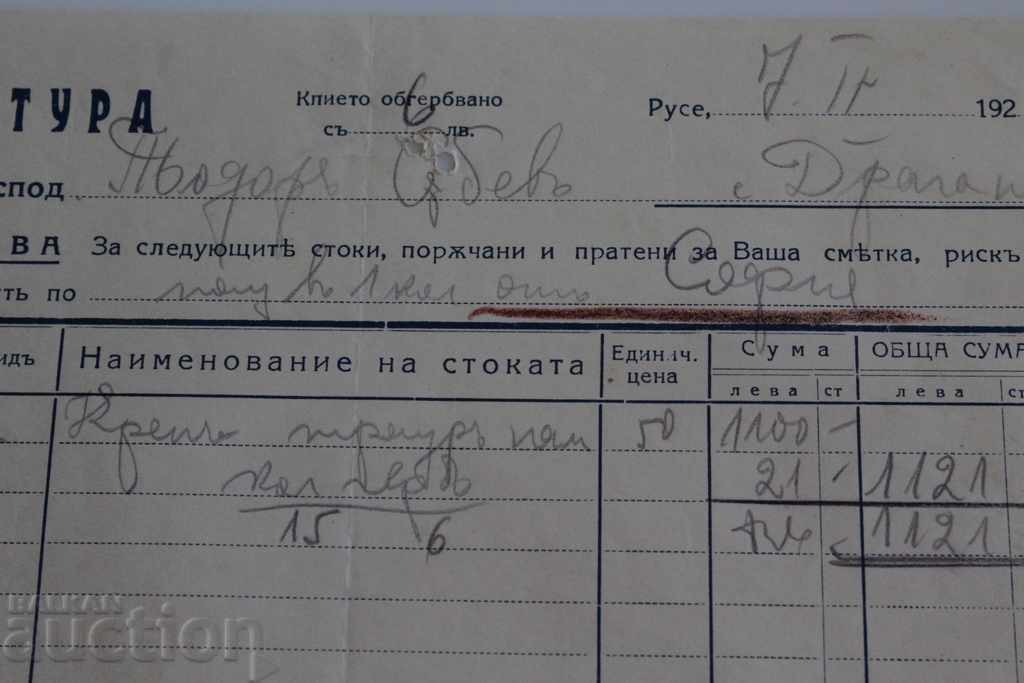 ТУРА Кпието обгербвано Русе, 7. IV 192
съ 6 лв.
спод Тодоръ с. Драган
ВА За следующитѣ стоки, порѫчани и пратени за Ваша смѣтка, рискъ
ть по 1 кол отъ София
идъ Наименование на стоката Единич. цена Сума лева ст ОБЩА СУМА лева ст
Крепъ 50 1100 –
кол 21 – 1121
15 6 1121
BALKAN auction